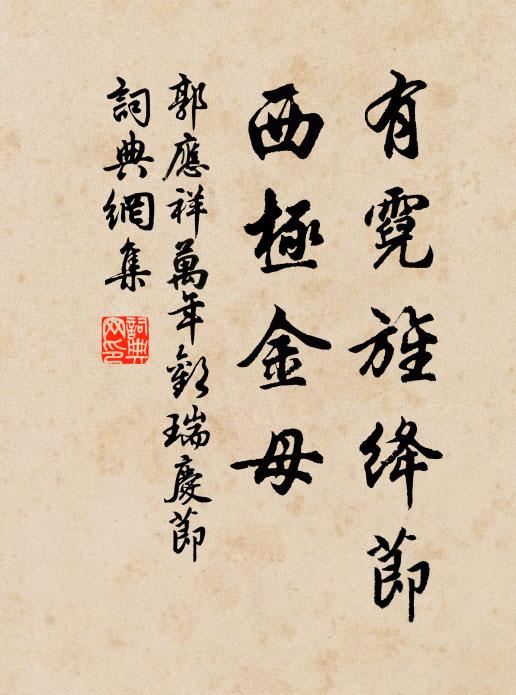 有霓旌绛節
西極金母
郭應祥萬年歡瑞慶節
詞典網集
詞典網印